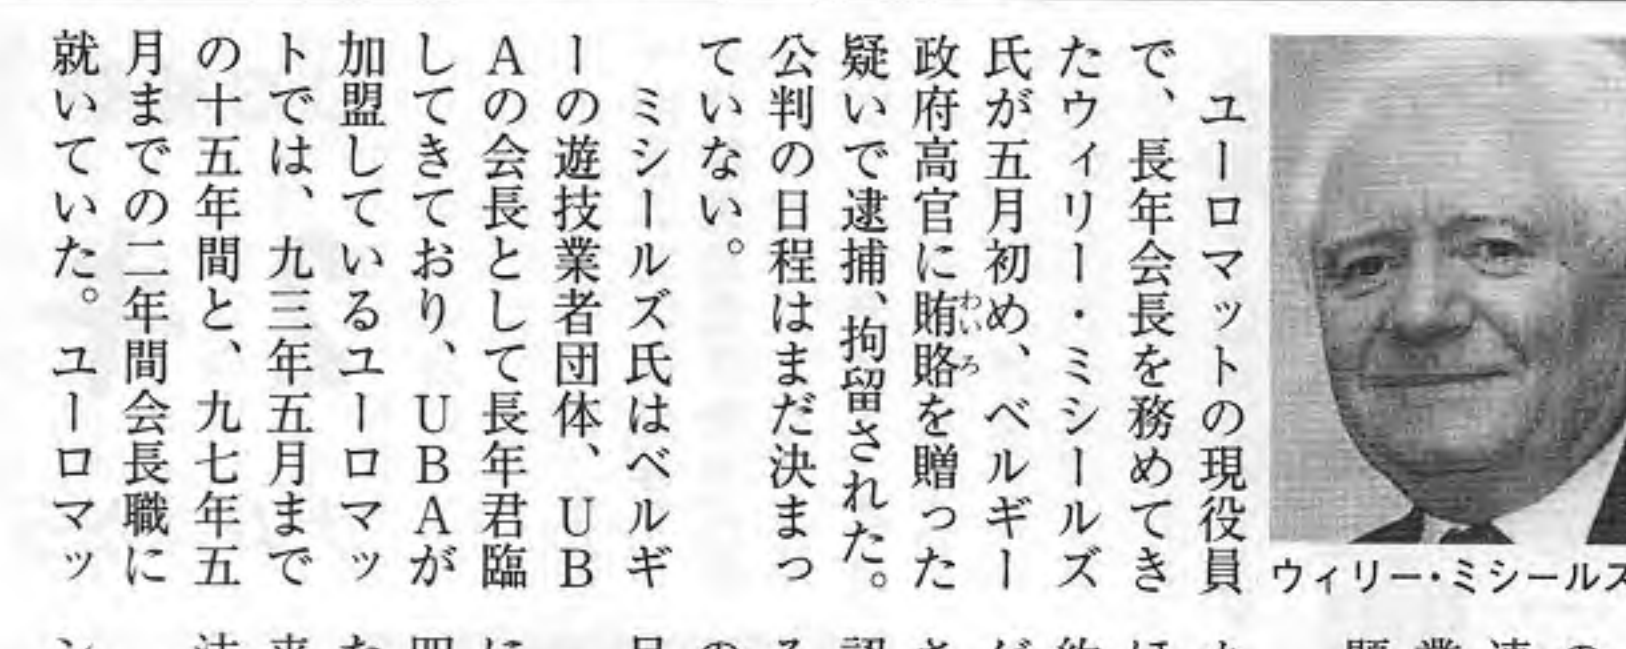 ユーロマットの現役員
で、長年会長を務めてき
たウィリー・ミシールズ
氏が五月初め、ベルギー
政府高官に賄賂わいろを贈った
疑いで逮捕、拘留された。
公判の日程はまだ決まっ
ていない。
ミシールズ氏はベルギ
ーの遊技業者団体、UB
Aの会長として長年君臨
してきており、UBAが
加盟しているユーロマッ
トでは、九三年五月まで
の十五年間と、九七年五
月までの二年間会長職に
就いていた。ユーロマッ
ウィリー・ミシールズ